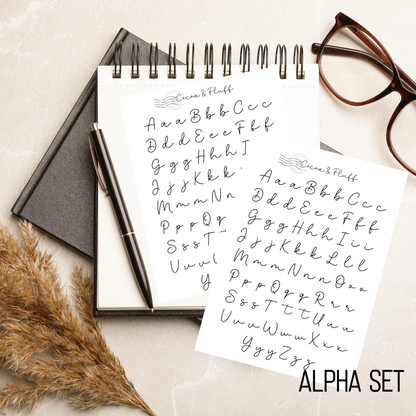 Cocoa & Fluff
AaaBbbCcc
DddEeeFff
GggHhhI
JjjKkk
MmmNn
PppQq
SssT
UuuV
Y
Cocoa & Fluff
AaaBbbCcc
DddEeeFff
GggHhhIii
JjjKkkLll
MmmNnnOoo
PppQqqRrr
SssTttUuu
VvvWwwXxx
YyyZzz
ALPHA SET